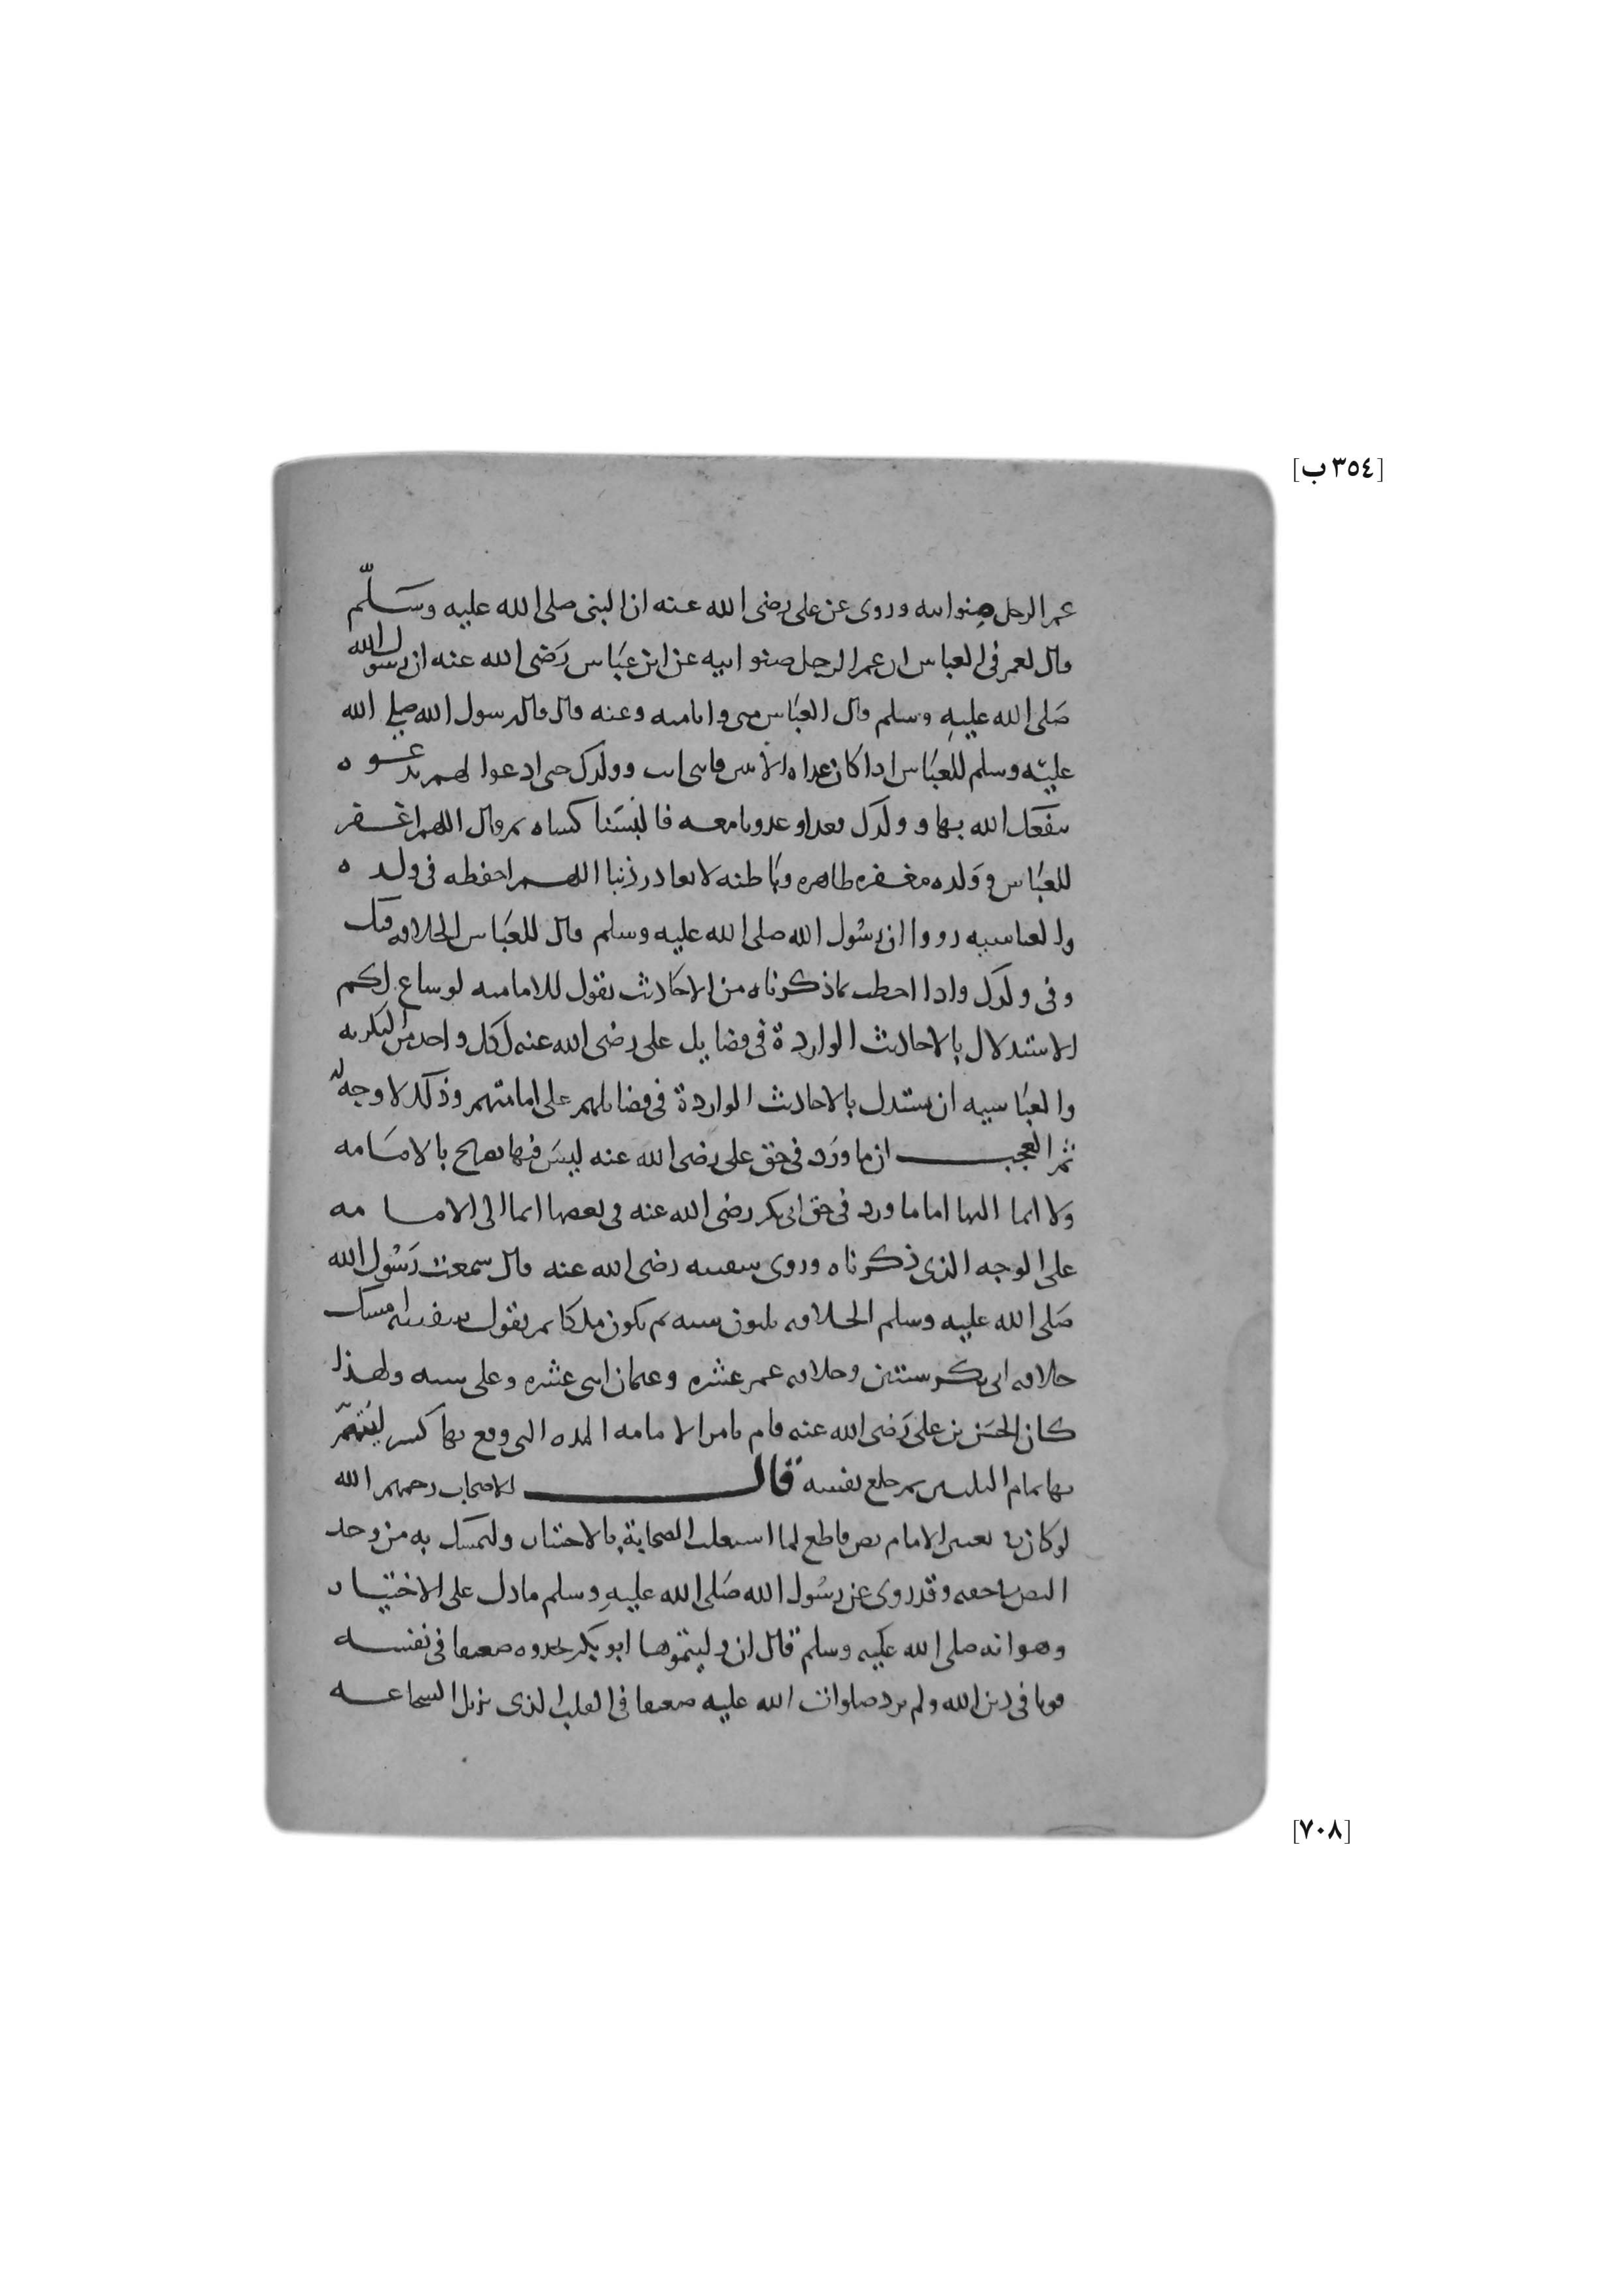 [٣٥٤ ب]
عم الرجل صنو ابيه وروى عن على رضى الله عنه ان النبى صلى الله عليه وسلم
قال لعمر فى العباس ان عم الرجل صنو ابيه عن ابن عباس رضى الله عنه ان رسول الله
صلى الله عليه وسلم قال العباس منى وانا منه وعنه قال قال رسول الله صلى الله
عليه وسلم للعباس اذا كان غداه الاثنين فاتنى انت وولدك حتى ادعوا لهم بدعوه
ينفعك الله بها وولدك فغدا وغدونا معه فالبسنا كساه ثم قال اللهم اغفر
للعباس وولده مغفره ظاهره وباطنه لا تغادر ذنبا اللهم احفظه فى ولده
والعباسيه رووا ان رسول الله صلى الله عليه وسلم قال للعباس الخلافه فيك
وفى ولدك واذا احطت بما ذكرناه من الاحاديث نقول للاماميه لو ساغ لكم
الاستدلال بالاحاديث الواردة فى فضايل على رضى الله عنه لكل واحد من البكريه
والعباسيه ان يستدل بالاحاديث الواردة فى فضايلهم على امامتهم وذلك لا وجه له
ثم العجب ان ما ورد فى حق على رضى الله عنه ليس فيها تصريح بالامامه
ولا ايما اليها اما ما ورد فى حق ابى بكر رضى الله عنه فى بعضها ايما الى الامامه
على الوجه الذى ذكرناه وروى سفينه رضى الله عنه قال سمعت رسول الله
صلى الله عليه وسلم الخلافه ثلثون سنه ثم يكون ملكا ثم يقول سفينه امسك
خلافه ابى بكر سنتين وخلافه عمر عشره وعثمان اثنى عشره وعلى سته ولهذا
كان الحسن بن على رضى الله عنه قام بامر الامامه المده التى وقع بها كسر ليتم
بها تمام الثلثين ثم خلع نفسه قال الاصحاب رحمهم الله
لو كان تعيين الامام بنص قاطع لما اشتغلت الصحابة بالاختيار ولتمسك به من وجد
النص فى حقه وقد روى عن رسول الله صلى الله عليه وسلم ما دل على الاختيار
وهو انه صلى الله عليه وسلم قال ان وليتموها ابو بكر تجدوه ضعيفا فى نفسه
قويا فى دين الله ولم يرد صلوات الله عليه ضعيفا فى القلب الذى يزيل الشجاعه
[٧٠٨]